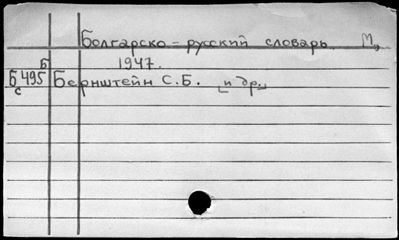 Болгарско-русский словарь. М,
Б 1947.
Б495 Бернштейн С.Б. [и др.]
с